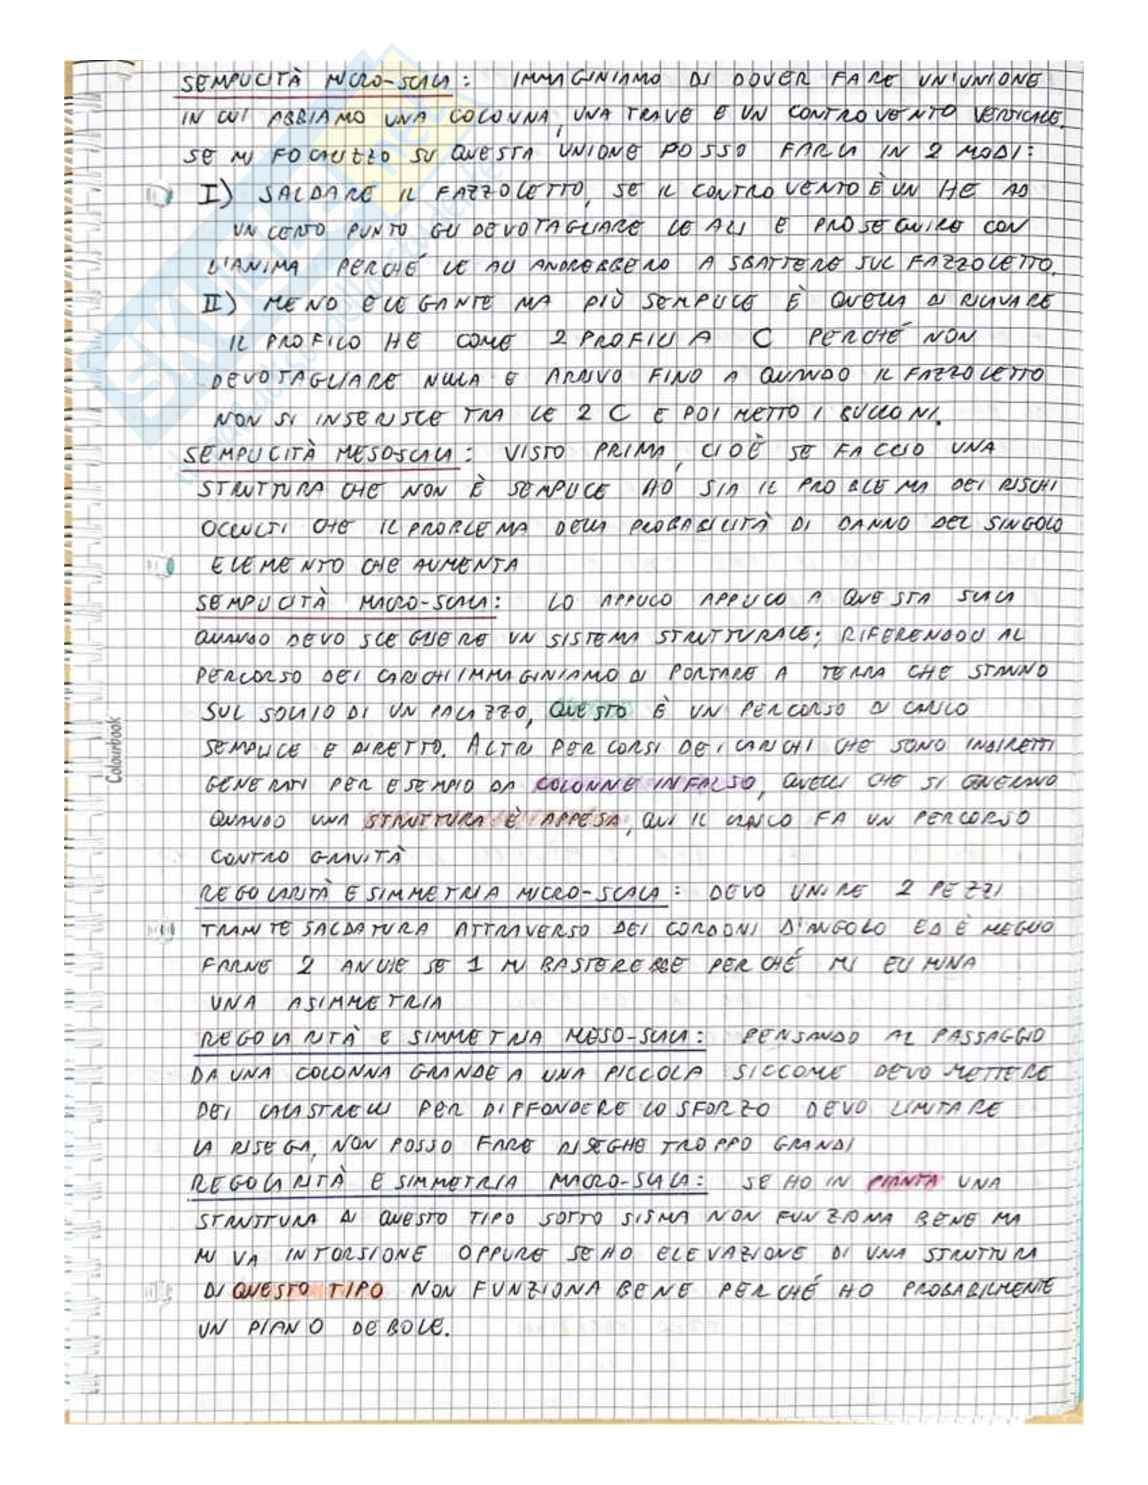 SEMPLICITÀ MICRO-SCALA: IMMAGINIAMO DI DOVER FARE UN'UNIONE
IN CUI ABBIAMO UNA COLONNA, UNA TRAVE E UN CONTROVENTO VERTICALE.
SE MI FOCALIZZO SU QUESTA UNIONE POSSO FARLA IN 2 MODI:
I) SALDARE IL FAZZOLETTO, SE IL CONTROVENTO È UN HE AD
UN CERTO PUNTO GLI DEVO TAGLIARE LE ALI E PROSEGUIRE CON
L'ANIMA PERCHÉ LE ALI ANDREBBERO A SBATTERE SUL FAZZOLETTO.
II) MENO ELEGANTE MA PIÙ SEMPLICE È QUELLA DI RICAVARE
IL PROFILO HE COME 2 PROFILI A C PERCHÉ NON
DEVO TAGLIARE NULLA E ARRIVO FINO A QUANDO IL FAZZOLETTO
NON SI INSERISCE TRA LE 2 C E POI METTO I BULLONI.
SEMPLICITÀ MESOSCALA: VISTO PRIMA, CIOÈ SE FACCIO UNA
STRUTTURA CHE NON È SEMPLICE HO SIA IL PROBLEMA DEI RISCHI
OCCULTI CHE IL PROBLEMA DELLA PROBABILITÀ DI DANNO DEL SINGOLO
ELEMENTO CHE AUMENTA
SEMPLICITÀ MACRO-SCALA: LO APPLICO APPLICO A QUESTA SCALA
QUANDO DEVO SCEGLIERE UN SISTEMA STRUTTURALE; RIFERENDOCI AL
PERCORSO DEI CARICHI IMMAGINIAMO DI PORTARE A TERRA CHE STANNO
SUL SOLAIO DI UN PALAZZO, QUESTO È UN PERCORSO DI CARICO
SEMPLICE E DIRETTO. ALTRI PERCORSI DEI CARICHI CHE SONO INDIRETTI
GENERATI PER ESEMPIO DA COLONNE IN FALSO, QUELLI CHE SI GENERANO
QUANDO UNA STRUTTURA È APPESA, QUI IL CARICO FA UN PERCORSO
CONTRO GRAVITÀ
REGOLARITÀ E SIMMETRIA MICRO-SCALA: DEVO UNIRE 2 PEZZI
TRAMITE SALDATURA ATTRAVERSO DEI CORDONI D'ANGOLO ED È MEGLIO
FARNE 2 ANCHE SE 1 MI BASTEREBBE PERCHÉ MI ELIMINA
UNA ASIMMETRIA
REGOLARITÀ E SIMMETRIA MESO-SCALA: PENSANDO AL PASSAGGIO
DA UNA COLONNA GRANDE A UNA PICCOLA SICCOME DEVO METTERE
DEI CALASTRELLI PER DIFFONDERE LO SFORZO DEVO LIMITARE
LA RISEGA, NON POSSO FARE RISEGHE TROPPO GRANDI
REGOLARITÀ E SIMMETRIA MACRO-SCALA: SE HO IN PIANTA UNA
STRUTTURA DI QUESTO TIPO SOTTO SISMA NON FUNZIONA BENE MA
MI VA IN TORSIONE OPPURE SE HO ELEVAZIONE DI UNA STRUTTURA
DI QUESTO TIPO NON FUNZIONA BENE PERCHÉ HO PROBABILMENTE
UN PIANO DEBOLE.
Colourbook